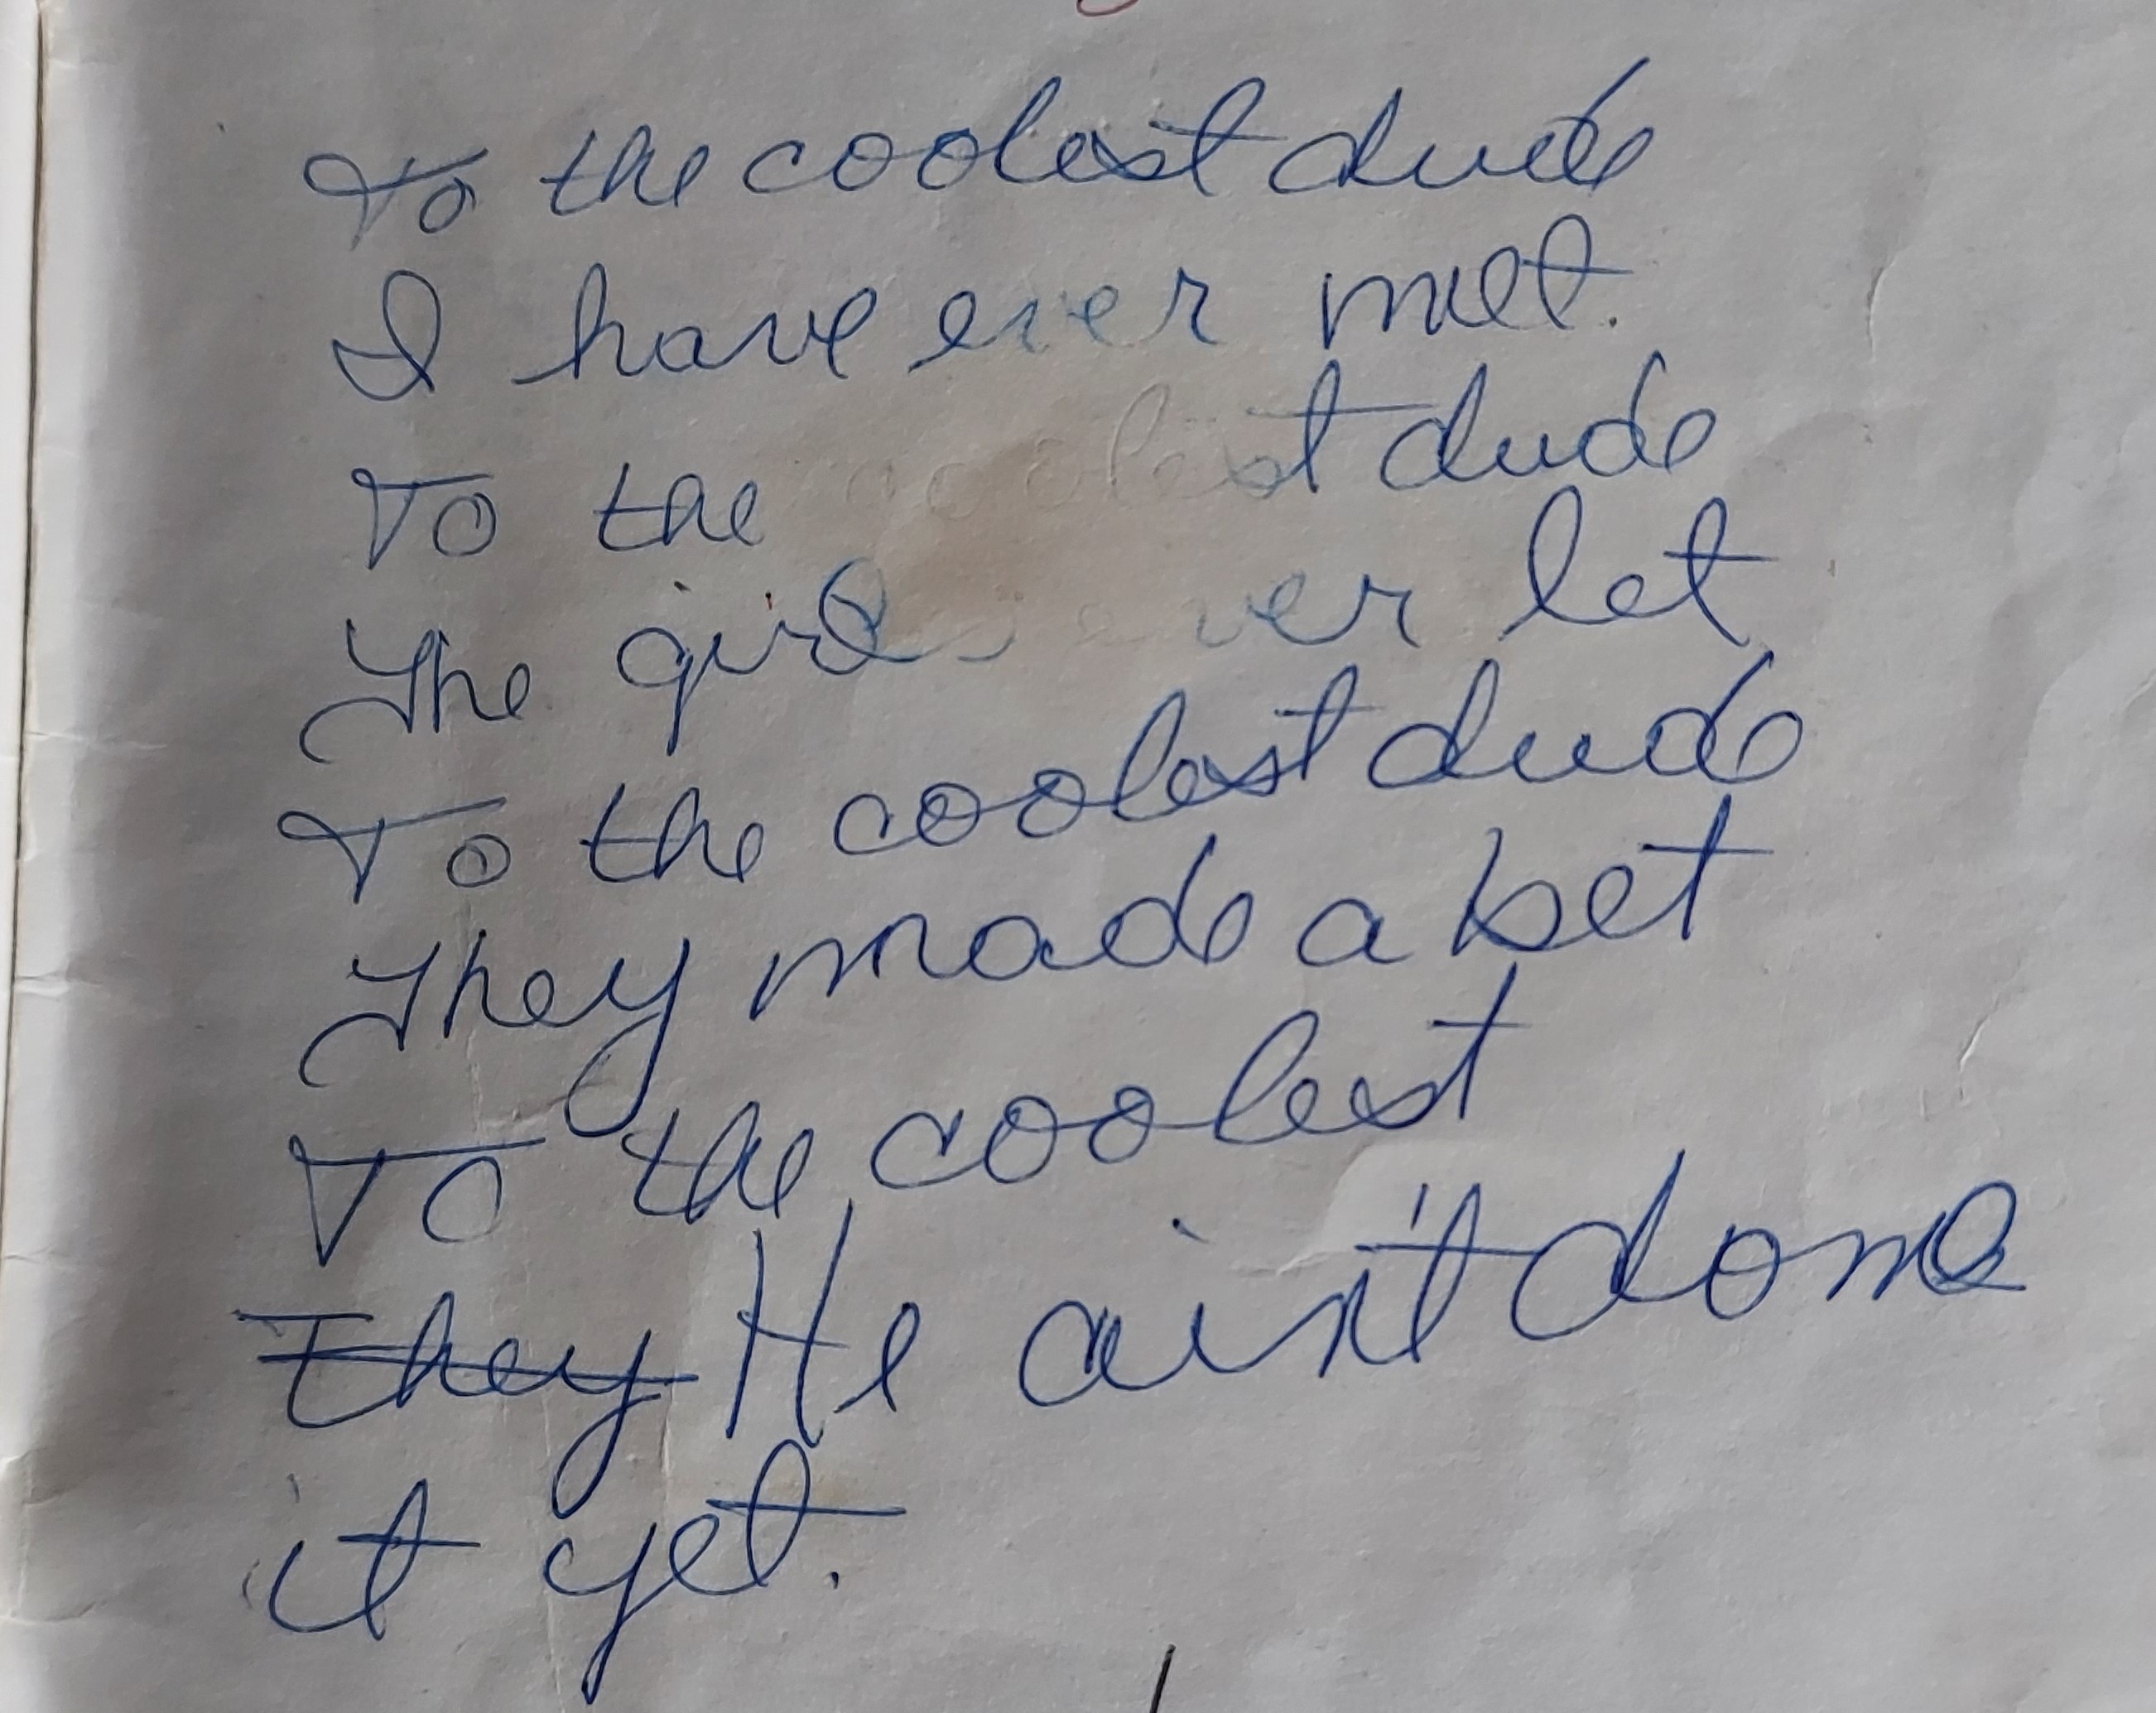 To the coolest dude
I have ever met.
To the coolest dude
The girls ever let
To the coolest dude
They made a bet
To the coolest
They He ain't done
it yet.